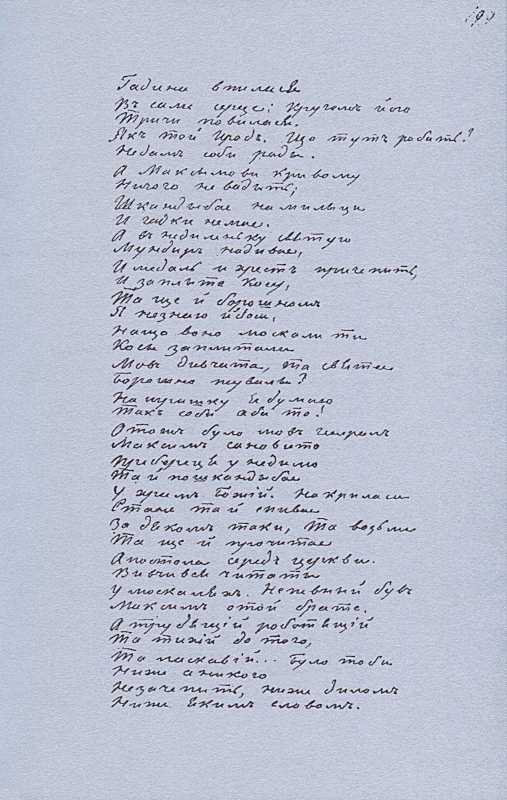 Гадина впилася
Въ саме серце; Кругомъ його
Тричи повилася.
Якъ той Иродъ. Що тутъ робить?
Недамъ соби рады.
А Максымови кривому
Ничого не вадыть;
Шкандыбае на милыци
И гадки немае.
А въ недиленьку святую
Мундиръ надивае,
И медаль и хрестъ причепить,
И заплете косу,
Та ще й борошномъ
Я незнаю й доси,
Нащо воно москали ти
Косы заплитали
Мовъ дивчата, та святее
Борошно псували?
На играшку я думаю
Такъ соби аби то!
Отожъ було мовъ генералъ
Максимъ сановито
Прибереця у недилю
Та й пошкандыбае
У храмъ Божій. На криласи
Стане та й спивае
За дякомъ таки, та возьме
Та ще й прочитае
Апостола середъ церкви.
Вивчився читати
У москаляхъ. Непевный бувъ
Максимъ отой брате.
А трудящій роботящій
Та тихій до того,
Та ласкавій... Було тоби
Ниже аникого
Незачепить, ниже диломъ
Ниже якимъ словомъ.